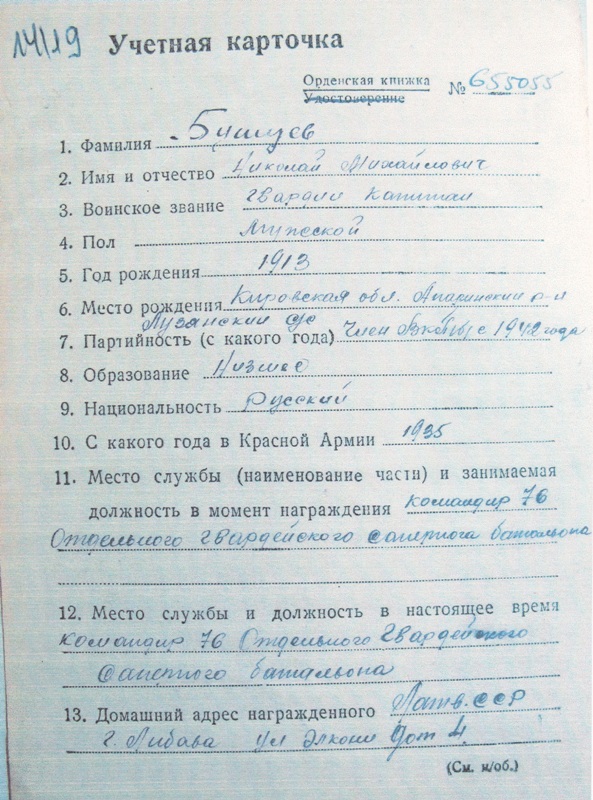 14/19 Учетная карточка
Орденская книжка
Удостоверение № 655055
1. Фамилия
2. Имя и отчество Николай Михайлович
3. Воинское звание Гвардии Капитан
4. Пол Мужской
5. Год рождения 1913
6. Место рождения Кировская обл. Опаринский р-н
Лузянский с/с
7. Партийность (с какого года) Член ВКП(б) с 1942 года
8. Образование Низшее
9. Национальность Русский
10. С какого года в Красной Армии 1935
11. Место службы (наименование части) и занимаемая
должность в момент награждения командир 76
Отдельного Гвардейского Саперного батальона
12. Место службы и должность в настоящее время
командир 76 Отдельного Гвардейского
Саперного батальона
13. Домашний адрес награжденного Латв. ССР
г. Либава ул дом 4
(См. н/об.)